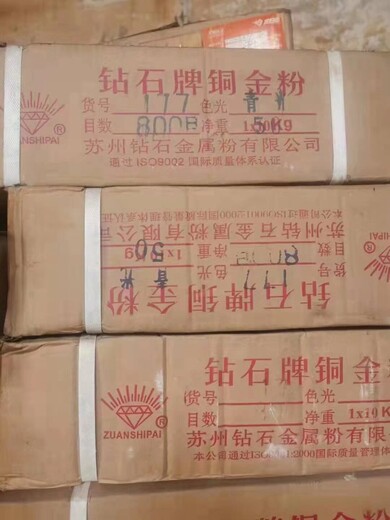 钻石牌铜金粉
货号 177 色光 青光
目数 800B 净重 1x10KG 5K
ZUANSHIPAI ®
苏州钻石金属粉有限公司
通过ISO9002国际质量体系认证
钻石牌铜金粉
货号 177 色光 青光
目数 净重
苏州钻石金属粉有限公司
本公司通过ISO9001:2000国际质量管理体系认证
ZUANSHIPAI ®
钻石牌铜金
货号 色光
目数 净重 1x10K
ZUANSHIPAI ®
苏州钻石金属粉有限
本公司通过ISO9001:2000国际质量管理体